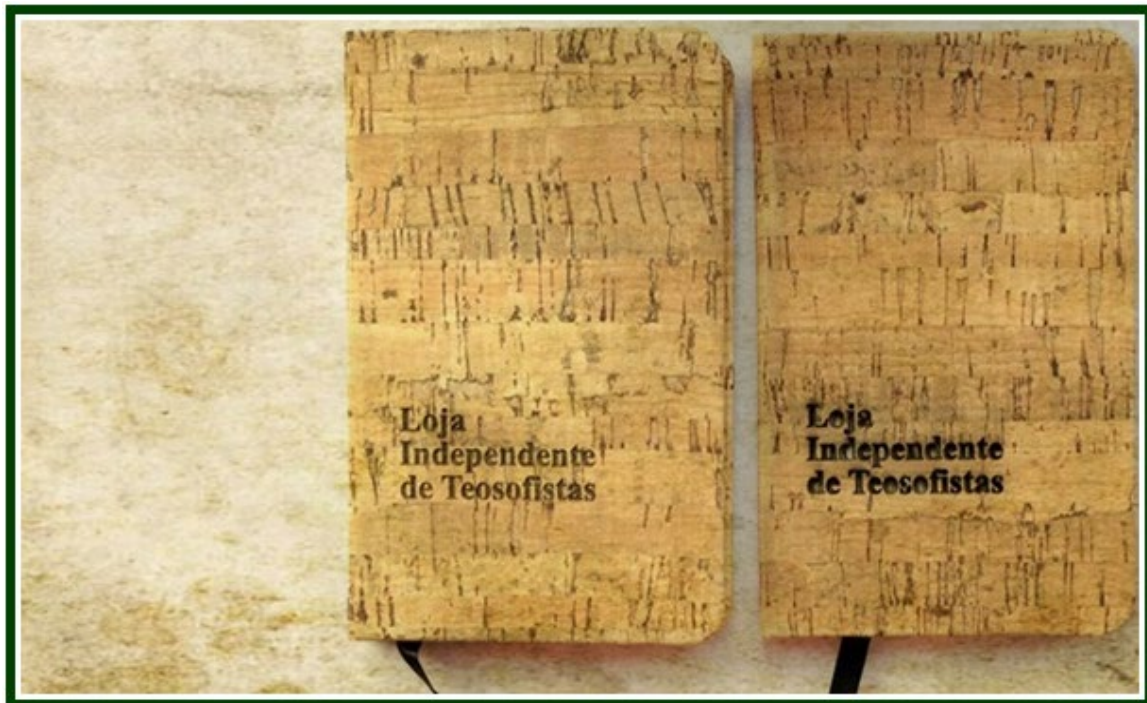 Loja
Independente
de Teosofistas
Loja
Independente
de Teosofistas